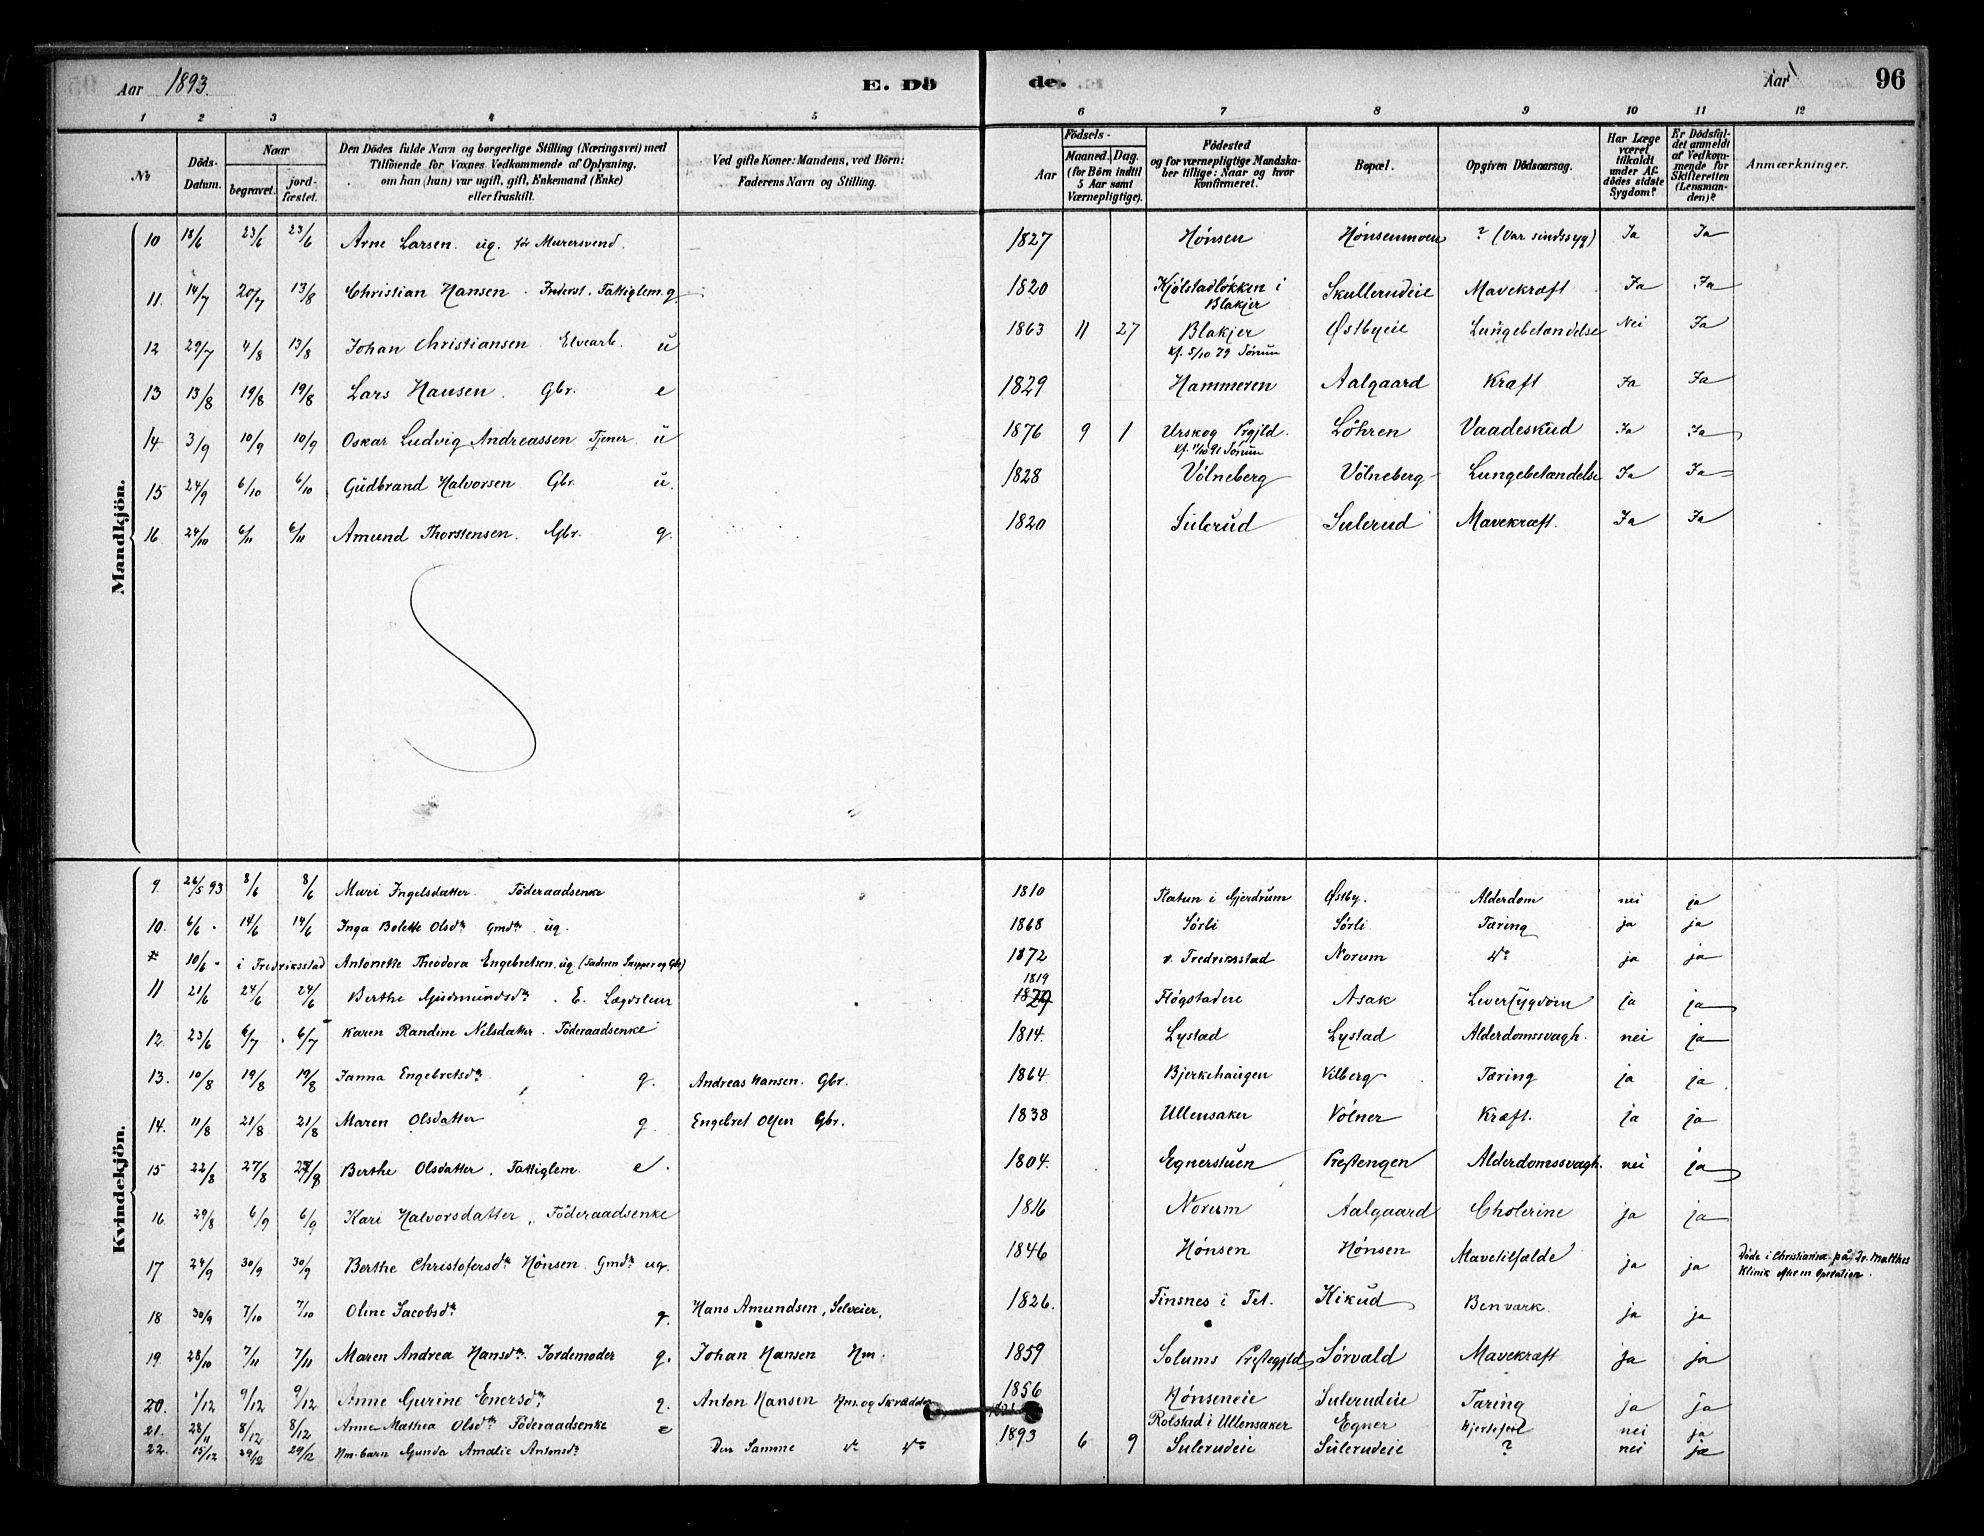 Aar 1893.
E. Dö
de.
Aar
96
1 2 3 4 5 6 7 8 9 10 11 12
No
Döds-Datum.
Naar
begravet.
jordfæstet.
Den Dödes fulde Navn og borgerlige Stilling (Næringsvei) med
Tilföiende for Voxnes Vedkommende af Oplysning,
om han (hun) var ugift, gift, Enkemand (Enke)
eller fraskilt.
Ved gifte Koner: Mandens, ved Börn:
Faderens Navn og Stilling.
Aar
Födsels-
Maaned. Dag.
(for Börn indtil
5 Aar samt
Værnepligtige).
Födested
og for værnepligtige Mandska-
ber tillige: Naar og hvor
konfirmeret.
Bopæl.
Opgiven Dödsaarsag.
Har Læge
været
tilkaldt
under Af-
dödes sidste
Sygdom?
Er Dödsfal-
det anmeldt
af Vedkom-
mende for
Skifteretten
(Lensman-
den)?
Anmærkninger.
Mandkjön.
10 18/6 23/6 23/6 Arne Larsen ug. før Murersvend. 1827 Hønsen Hønsenmoen ? (Var sindssyg) Ja Ja
11. 14/7 20/7 13/8 Christian Hansen. Inderst. Fattiglem. g. 1820 Kjølstadløkken i Blakjer Skullerudeie Mavekræft Ja Ja
12 29/7 4/8 13/8 Johan Christiansen Elvearb. u 1863 11 27 Blakjer Østbyeie Lungebetændelse Nei Ja
Kf. 5/10 79 Sørum
13 13/8 19/8 19/8 Lars Hansen. Gbr. e 1829 Hammeren Aalgaard Kræft Ja Ja
14. 3/9 10/9 10/9 Oskar Ludvig Andreassen Tjener u 1876 9 1 Urskog Prgjld. Löhren Vaadeskud Ja Ja
Kf. 11/10 91 Sørum
15 24/9 6/10 6/10 Gudbrand Halvorsen Gbr. u. 1828 Völneberg Völneberg Lungebetændelse Ja Ja
16 24/10 6/11 6/11 Amund Thorstensen. Gbr. g. 1820 Sulerud Sulerud Mavekræft. Ja Ja
Kvindekjön.
9. 26/5 93 8/6 8/6 Mari Ingelsdatter. Föderaadsenke 1810 Flatun i Gjerdrum Østby. Alderdom nei ja
10. 6/6 14/6 14/6 Inga Bolette Olsdtr Gmdtr ug. 1868 Sörli Sörli Tæring ja ja
10/6 i Fredriksstad Antonette Theodora Engebretsen. ug. (Fadren Skipper og Gbr) 1872 v. Fredriksstad Norum Do ja ja
11 21/6 24/6 24/6 Berthe Gudmundsdtr. E. Lægdslem 1819 Fløgstadeie Asak Leversygdom ja ja
12. 23/6 6/7 6/7 Karen Randine Nilsdatter. Föderaadsenke 1814. Lystad Lystad Alderdomssvagh. nei ja
13. 10/8 19/8 19/8 Janna Engebretsdtr. g. Andreas Hansen. Gbr. 1864 Bjerkehaugen Vilberg Tæring ja ja
14. 11/8 21/8 21/8 Maren Olsdatter g. Engebret Olsen Gbr. 1838 Ullensaker Völner Kræft. ja ja
15 22/8 27/8 27/8 Berthe Olsdatter. Fattiglem. e. 1804. Egnerstuen Prestengen Alderdomssvagh. nei ja
16. 29/8 6/9 6/9 Kari Halvorsdatter, Föderaadsenke 1816 Norum Aalgaard Cholerine ja ja
17 24/9 30/9 30/9 Berthe Christofersdtr Hønsen Gmdtr ug. 1846 Hønsen Hønsen Mavetilfælde ja ja Döde i Christiania på Dr. Malthes
Klinik efter en Operation.
18 30/9 7/10 7/10 Oline Jacobsdtr g. Hans Amundsen, Selveier. 1826. Finsnes i Fet. Kikud Benværk. ja ja
19. 28/10 7/11 7/11 Maren Andrea Hansdtr. Jordemoder g. Johan Hansen Hm. 1859 Solums Prestegjld Sörvald Mavekræft ja ja
20. 1/12 9/12 9/12 Anne Gurine Enersdtr g. Anton Hansen Hm. og Skrædder 1856 Hönseneie Sulerudeie Tæring ja ja
21. 28/11 8/12 8/12 Anne Mathea Olsdtr Föderaadsenke e Rolstad i Ullensaker Egner Hjertefeil nei ja
22. 15/12 29/12 29/12 Hm. barn Gunda Amalie Antonsdtr Den Samme Do Do 1893 6 9 Sulerudeie Sulerudeie ? nei ja